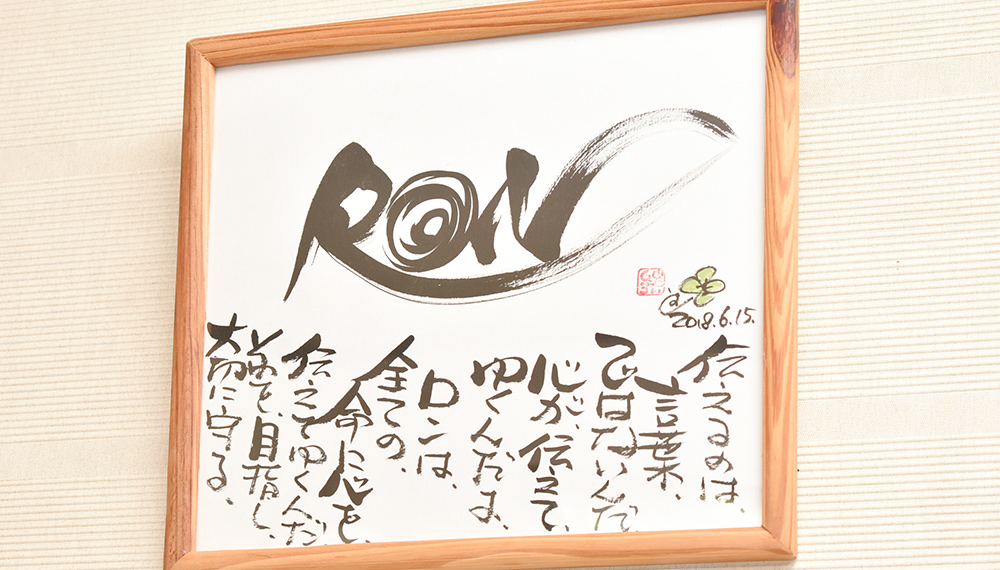 RON
2018.6.15.
伝えるのは、
言葉、
ではないんだ
心が、伝えて、
ゆくんだよ、
ロンは、
全ての、
命に心を、
伝えてゆくんだ
を、目指し、
大切に守る、